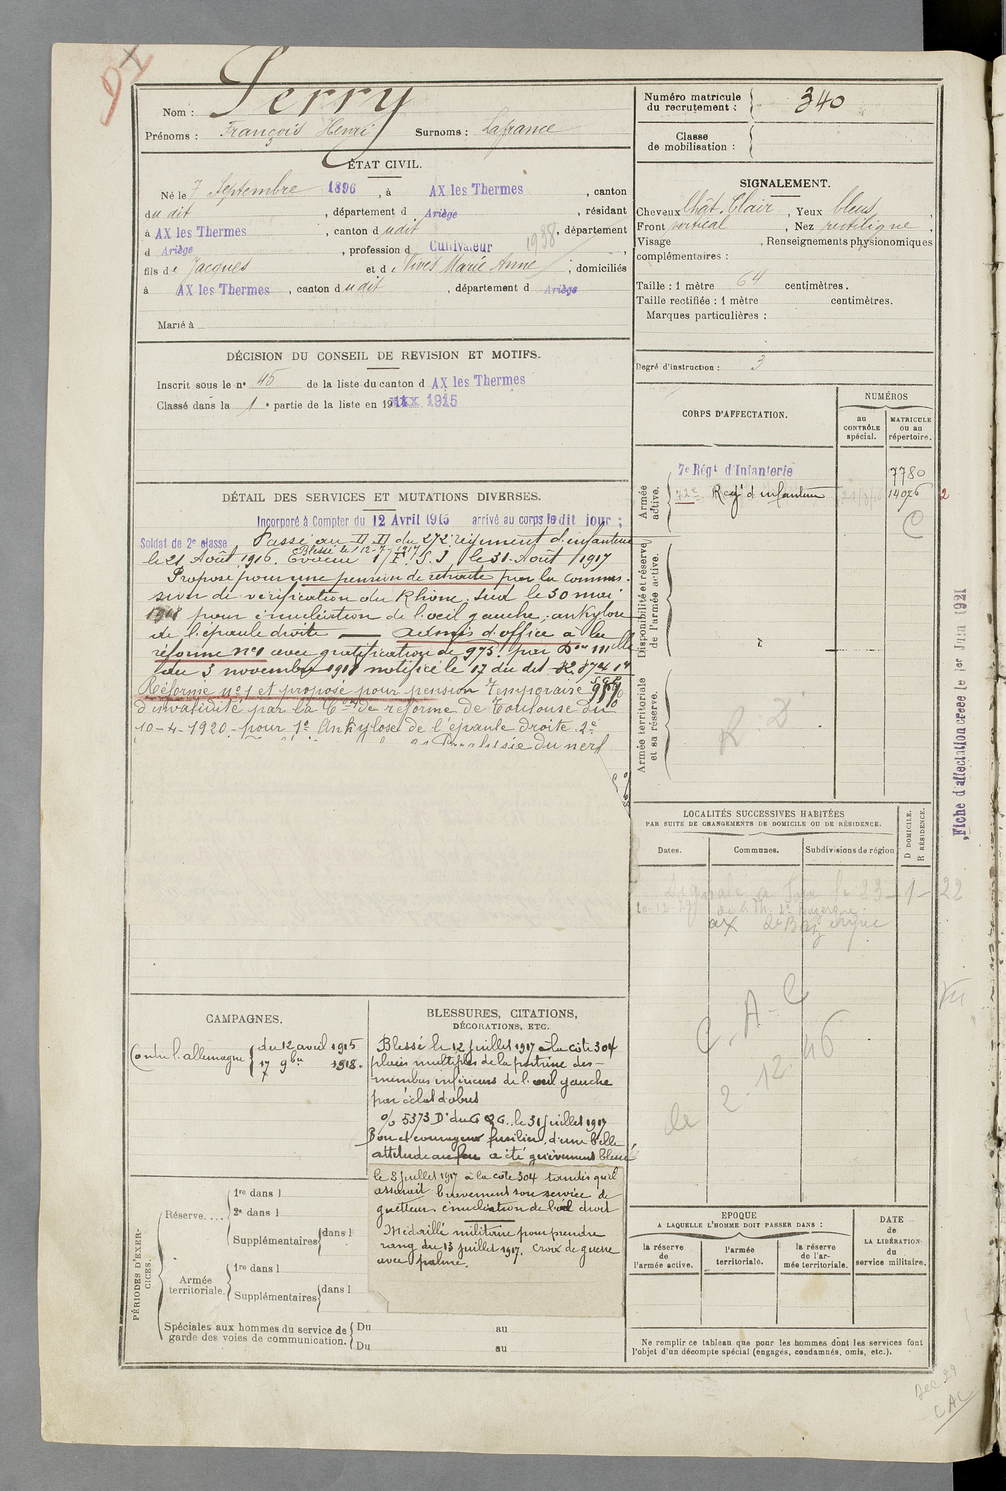 Nom : Perry
Prénoms : François Henri Surnoms : Lafrance
ÉTAT CIVIL.
Né le 7 Septembre 1896, à AX les Thermes, canton
dudit, département d Ariège, résidant
à AX les Thermes, canton dudit, département
d Ariège, profession d Cultivateur
1938
fils de Jacques et de Vives Marie Anne, domiciliés
à AX les Thermes, canton dudit, département d Ariège
Marié à
DÉCISION DU CONSEIL DE REVISION ET MOTIFS.
Inscrit sous le n° 45 de la liste du canton d AX les Thermes
Classé dans la 1e partie de la liste en 19 1915
DÉTAIL DES SERVICES ET MUTATIONS DIVERSES.
Incorporé à Compter du 12 Avril 1915 arrivé au corps ledit jour ;
Soldat de 2e classe, Passé au du 272 régiment d'infanterie
le 21 Août 1916. Blessé le 12-7-1917 Évacué le 31 Août 1917
Proposé pour une pension de retraite par la commis-
sion de vérification du Rhône sud le 30 mai
1918 pour énucléation de l'oeil gauche ; ankylose
de l'épaule droite — admis d'office à la
réforme n°1 avec gratification de 975f par Don mlle
du 3 novembre 1918 notifiée le 17 du dit
Réforme n°1 et proposé pour pension temporaire
d'invalidité par la Con de réforme de Toulouse du
10-4-1920 - pour 1° Ankylose de l'épaule droite 2°
Paralysie du nerf
CAMPAGNES.
Contre l'allemagne { du 12 avril 1915
17 9bre 1918.
BLESSURES, CITATIONS,
DÉCORATIONS, ETC.
Blessé le 12 juillet 1917 à la côte 304
plaies multiples de la poitrine des
membres inférieurs de l'oeil gauche
par éclat d'obus
O/ 5373 D" du G Q G. le 31 juillet 1917
Bon et courageux fusilier, d'une belle
attitude au feu a été grièvement blessé
le 8 juillet 1917 à la côte 304 tandis qu'il
assurait bravement son service de
guetteur. énucléation de l'oeil droit
Médaillé militaire pour prendre
rang du 13 juillet 1917. Croix de guerre
avec palme.
PÉRIODES D'EXERCICES.
Réserve....
1re dans l
2e dans l
Supplémentaires dans l
Armée territoriale.
1re dans l
Supplémentaires dans l
Spéciales aux hommes du service de garde des voies de communication.
Du au
Du au
Numéro matricule du recrutement : 340
Classe de mobilisation :
SIGNALEMENT.
Cheveux Chât. Clair, Yeux bleus,
Front vertical, Nez rectiligne,
Visage , Renseignements physionomiques
complémentaires :
Taille : 1 mètre 64 centimètres.
Taille rectifiée : 1 mètre centimètres.
Marques particulières :
Degré d'instruction : 3
CORPS D'AFFECTATION.
NUMÉROS
au CONTRÔLE spécial.
MATRICULE ou au répertoire.
Armée active.
7e Régt d'Infanterie 7780
272e Regt d'infanterie 14026
2
C
Disponibilité et réserve de l'armée active.
Armée territoriale et sa réserve.
R. D
Fiche d'affectation créée le 1er Juin 1921
LOCALITÉS SUCCESSIVES HABITÉES
PAR SUITE DE CHANGEMENTS DE DOMICILE OU DE RÉSIDENCE.
Dates.
Communes.
Subdivisions de région
D DOMICILE.
R RÉSIDENCE.
23-1-22
ax
C. A. C
le 2.12.46
EPOQUE
A LAQUELLE L'HOMME DOIT PASSER DANS :
la réserve de l'armée active.
l'armée territoriale.
la réserve de l'armée territoriale.
DATE de LA LIBÉRATION du service militaire.
Ne remplir ce tableau que pour les hommes dont les services font
l'objet d'un décompte spécial (engagés, condamnés, omis, etc.).
CAC